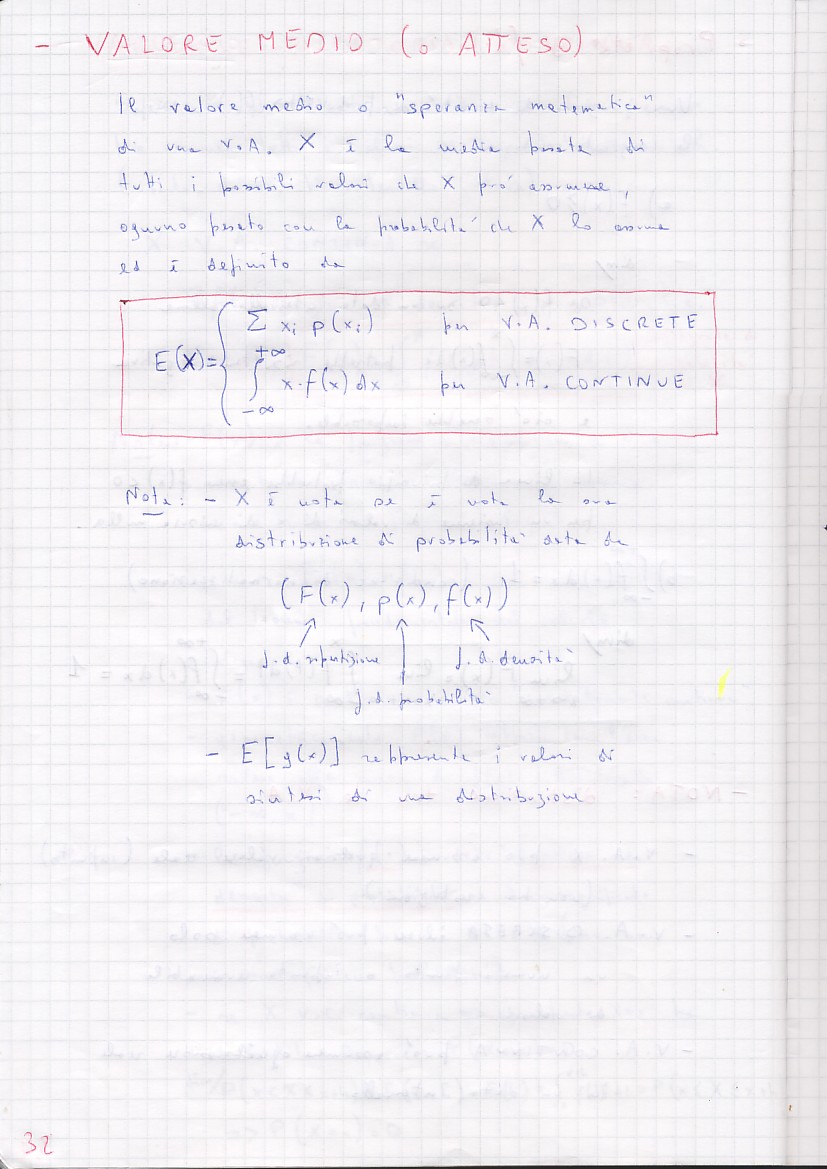 - VALORE MEDIO (o ATTESO)
Il valore medio o "speranza matematica"
di una V.A. X è la media pesata di
tutti i possibili valori che X può assumere,
ognuno pesato con la probabilità che X lo assuma
ed è definito da
E(X)= { ∑ xi p(xi) per V.A. DISCRETE
∫ -∞ +∞ x·f(x) dx per V.A. CONTINUE
Nota: - X è nota se è nota la sua
distribuzione di probabilità data da
(F(x), p(x), f(x))
f.d.ripartizione f.d.densità
f.d.probabilità
- E[g(x)] rappresenta i valori di
sintesi di una distribuzione
32